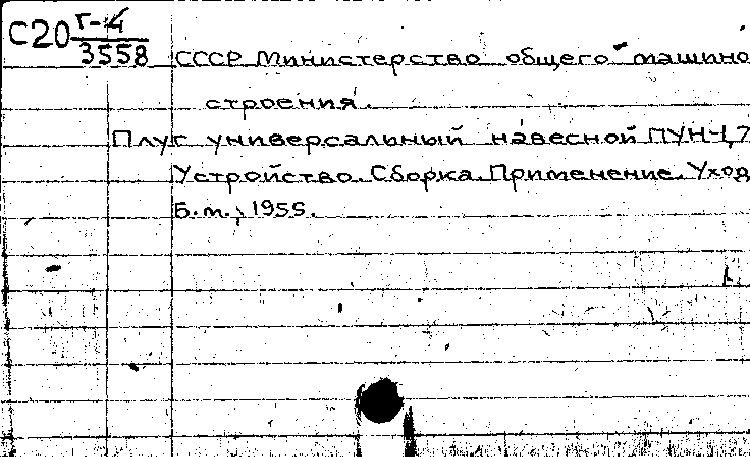 С20 Г-4
3558
СССР Министерство общего машино
строения.
Плуг универсальный навесной ПУН-1,7
Устройство. Сборка. Применение. Уход
Б.м., 1955.